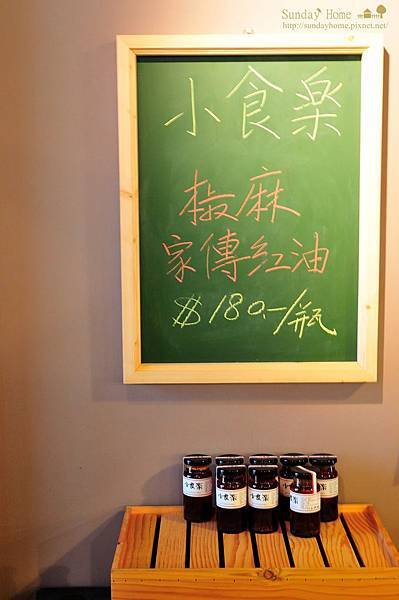 Sunday Home
http://sundayhome.pixnet.net/
小食楽
椒麻
家傳紅油
$180.-/瓶
小食楽
小食楽
小食楽